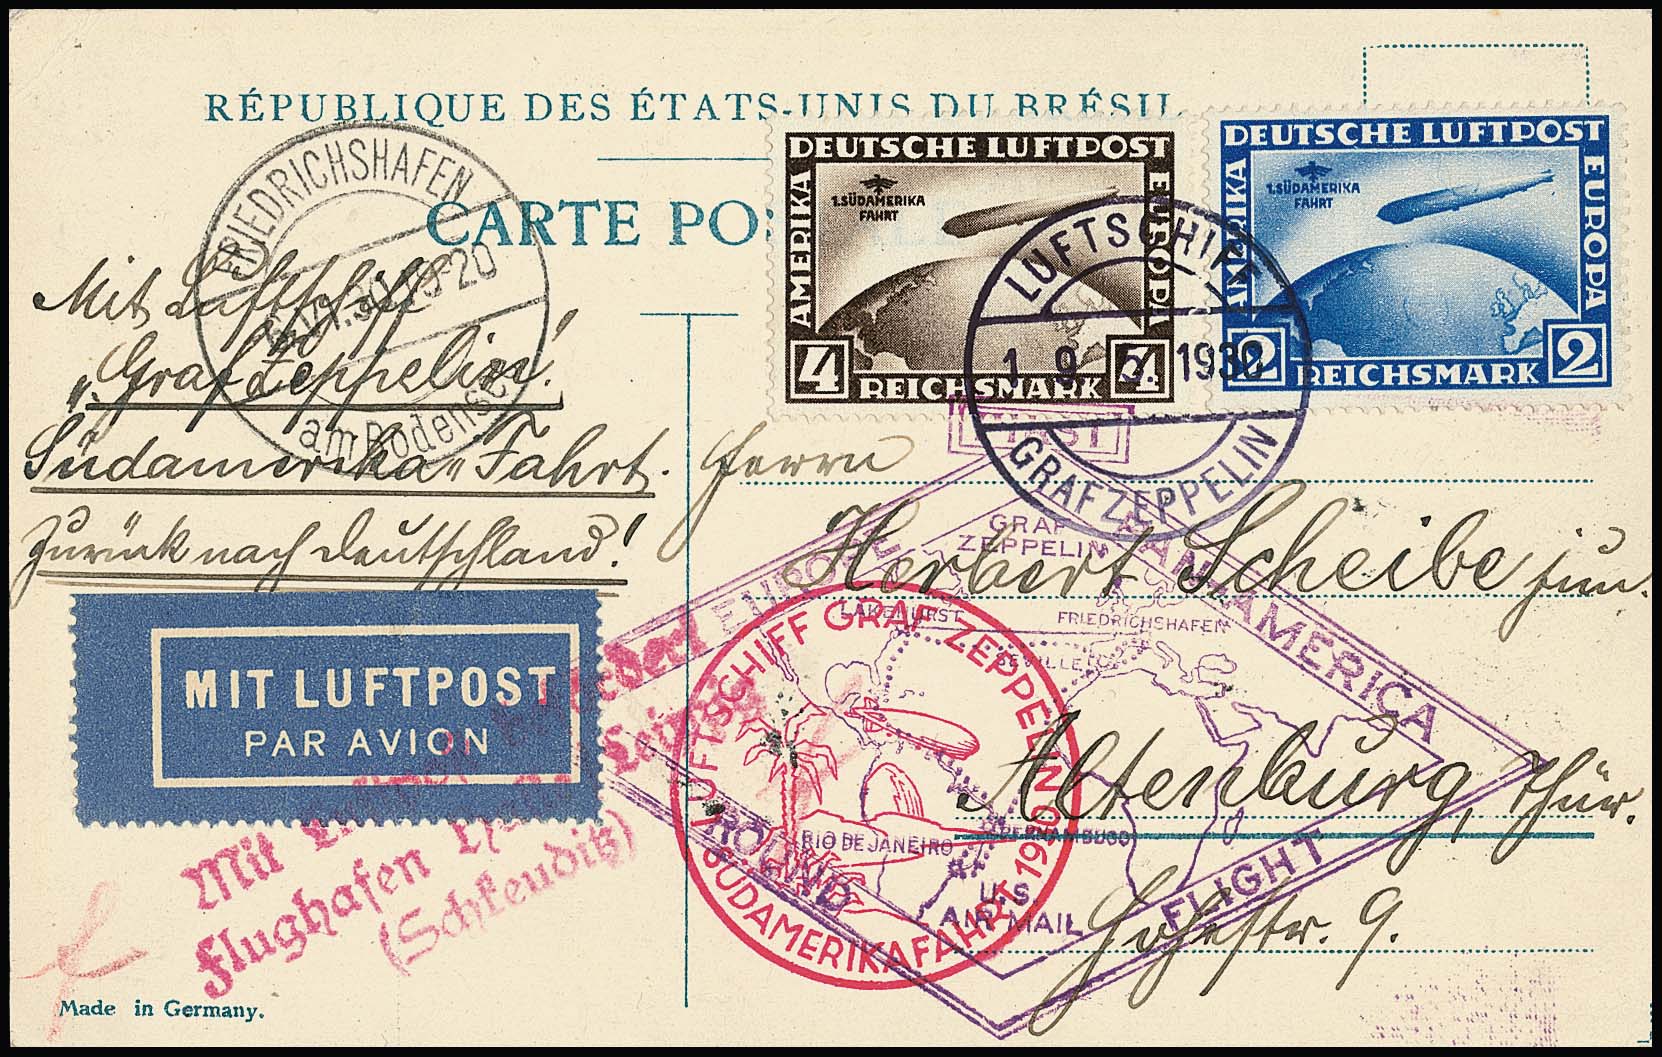 RÉPUBLIQUE DES ÉTATS-UNIS DU BRÉSIL
CARTE PO
FRIEDRICHSHAFEN
am Bodensee
DEUTSCHE LUFTPOST
AMERIKA
EUROPA
1.SÜDAMERIKA
FAHRT
4
4
REICHSMARK
DEUTSCHE LUFTPOST
AMERIKA
EUROPA
1.SÜDAMERIKA
FAHRT
2
2
REICHSMARK
LUFTSCHIFF
1 9. 5. 1930
GRAF ZEPPELIN
Mit Luftschiff
„Graf Zeppelin"!
Südamerika-Fahrt.
zurück nach Deutschland!
FIRST
Herrn
Herbert Scheibe jun.
Altenburg, Thür.
Hohestr. 9.
MIT LUFTPOST
PAR AVION
EUROPE
PAN-AMERICA
ROUND
FLIGHT
GRAF
ZEPPELIN
LAKEHURST
FRIEDRICHSHAFEN
SEVILLE
RIO DE JANEIRO
PERNAMBUCO
U.S.
AIR MAIL
LUFTSCHIFF GRAF ZEPPELIN
SÜDAMERIKAFAHRT 1930
Mit
befördert
Flughafen
Leipzig
(Schkeuditz)
Made in Germany.